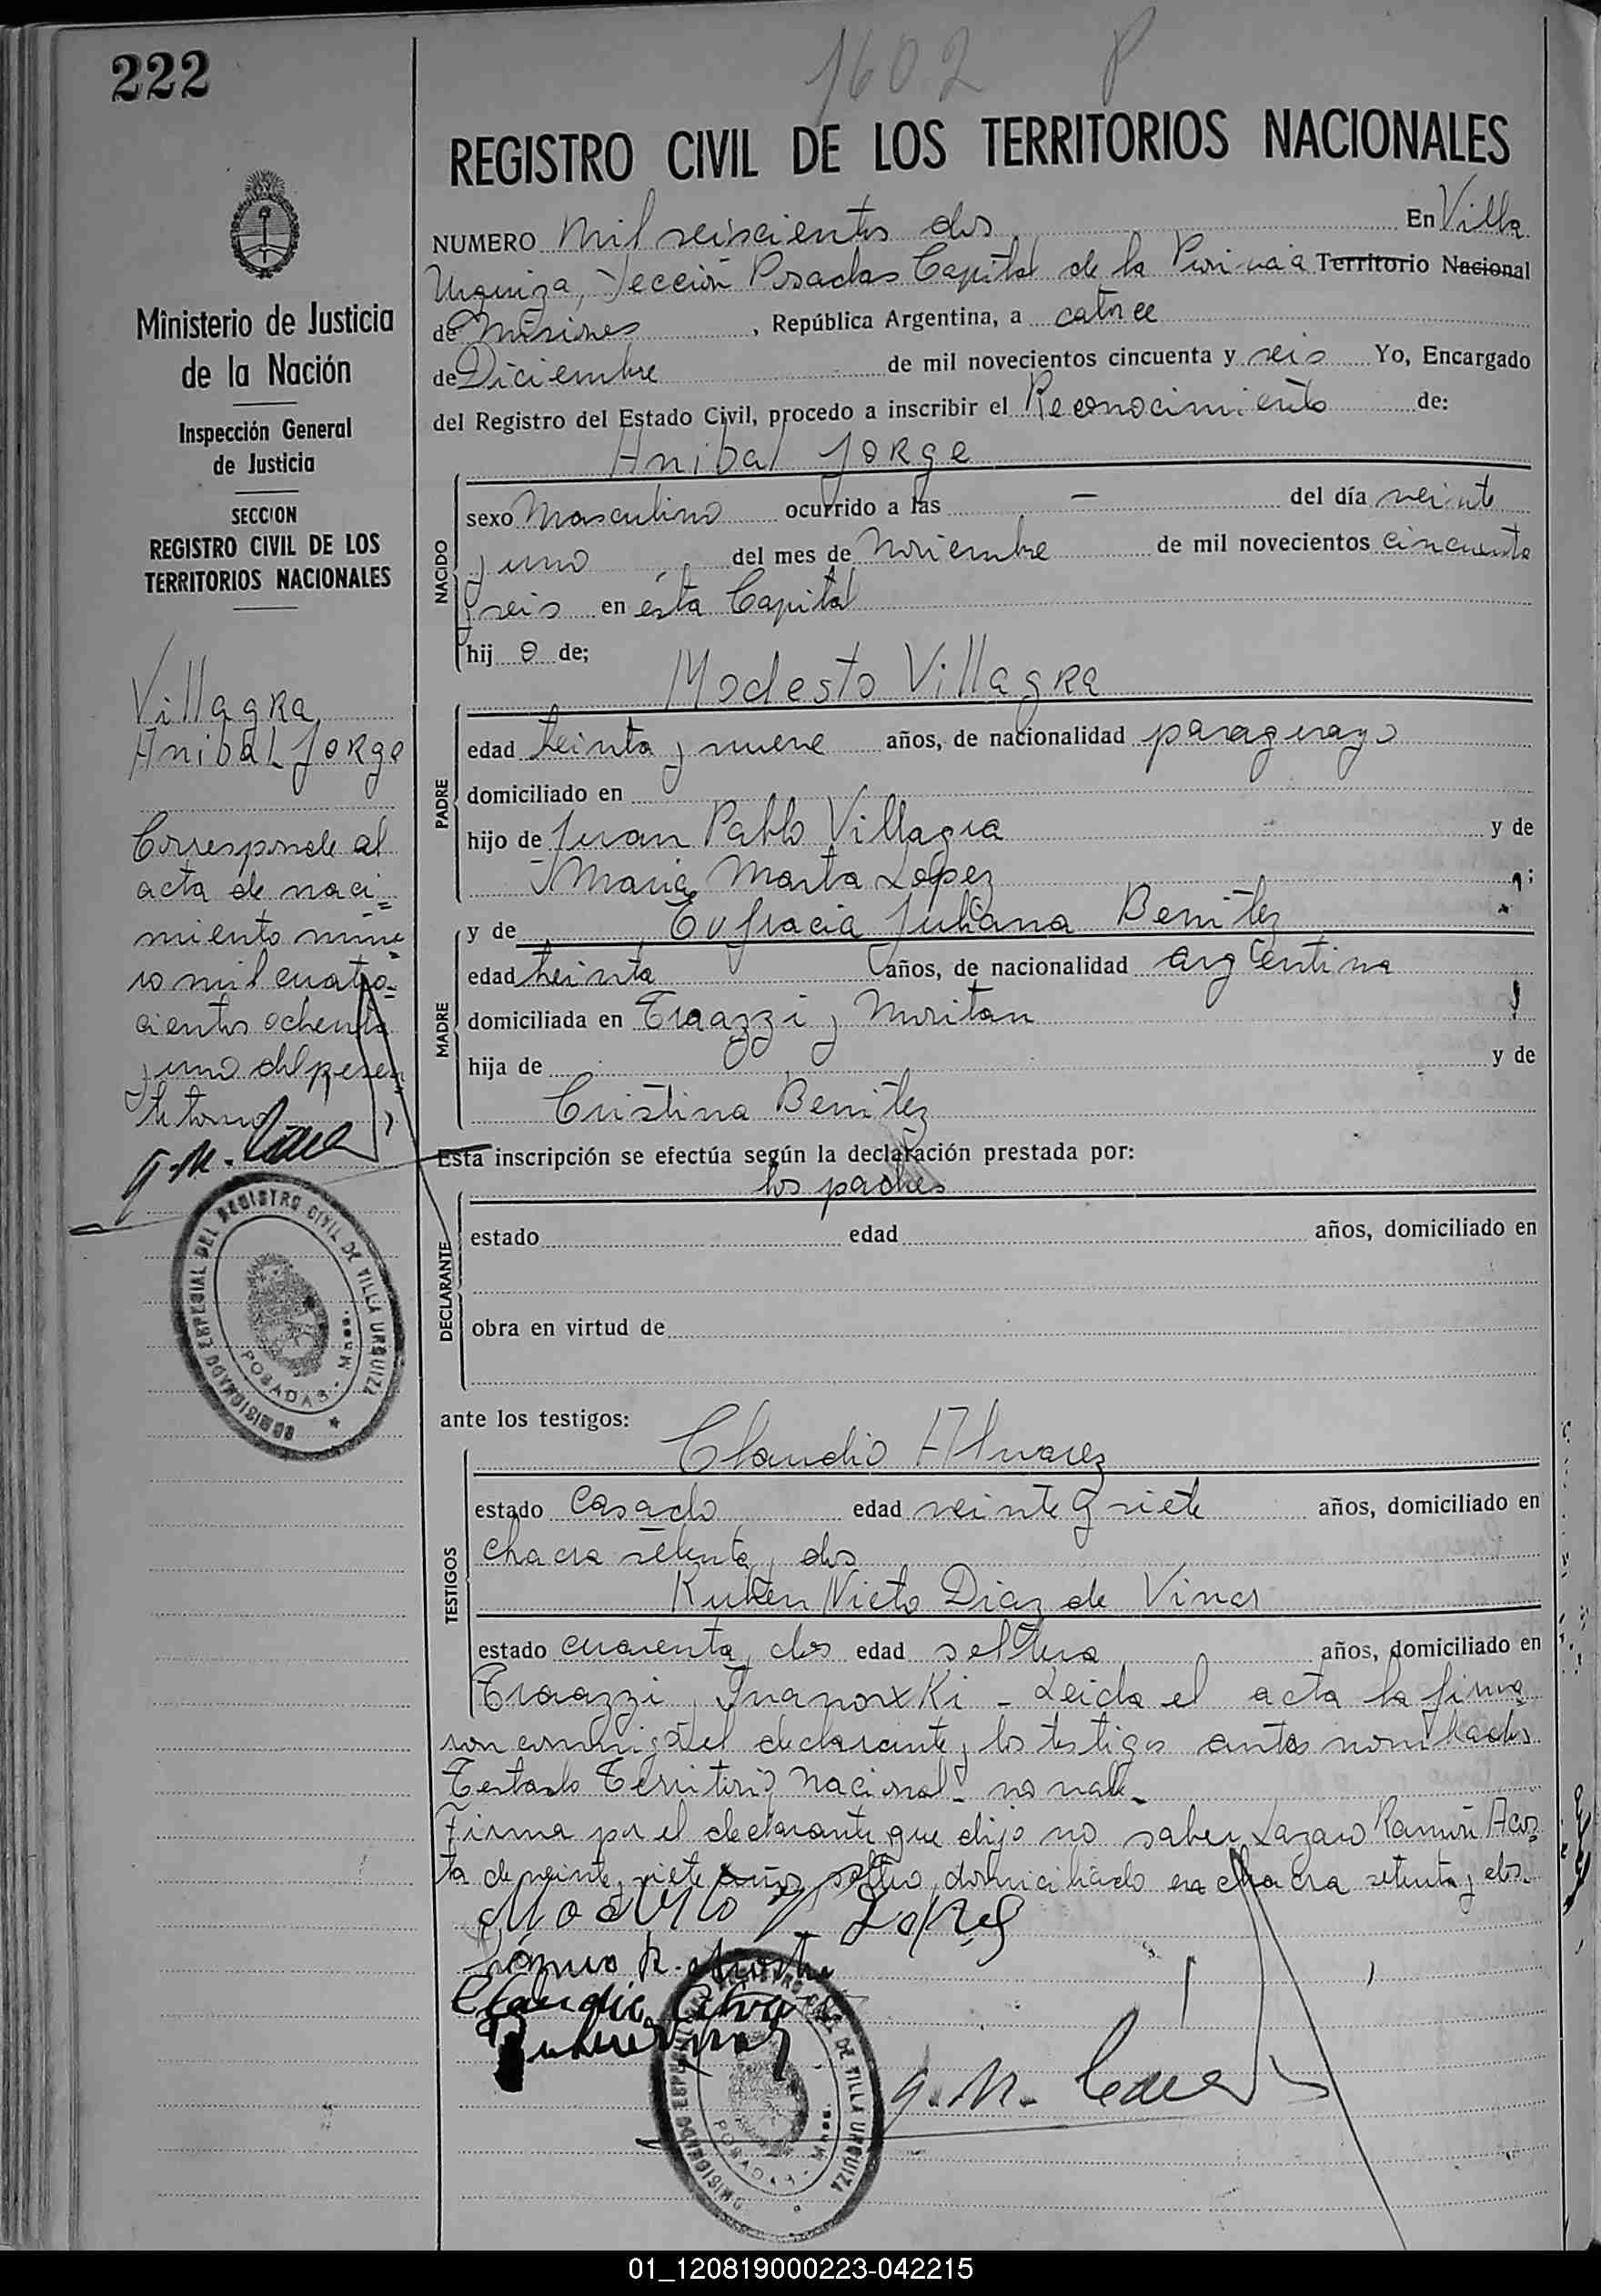 222
1602 P
REGISTRO CIVIL DE LOS TERRITORIOS NACIONALES
NUMERO Mil seiscientos dos En Villa
Urquiza, Sección Posadas Capital de la Provincia Territorio Nacional
de Misiones, República Argentina, a catorce
de Diciembre de mil novecientos cincuenta y seis Yo, Encargado
del Registro del Estado Civil, procedo a inscribir el Reconocimiento de:
Anibal Jorge
NACIDO
sexo Masculino ocurrido a las — del día veinte
y uno del mes de Noviembre de mil novecientos cincuenta
y seis en ésta Capital
hij o de;
Modesto Villagra
PADRE
edad treinta y nueve años, de nacionalidad paraguayo
domiciliado en
hijo de Juan Pablo Villagra y de
Maria Marta Lopez ;
MADRE
y de Eufracia Juliana Benitez
edad treinta años, de nacionalidad argentina
domiciliada en Trazzi y
hija de y de
Cristina Benitez
Esta inscripción se efectúa según la declaración prestada por:
los padres
DECLARANTE
estado edad años, domiciliado en
obra en virtud de
ante los testigos:
Claudio Alvarez
TESTIGOS
estado casado edad veinte y siete años, domiciliado en
chacra setenta y dos
Ruben Nieto Diaz de Vivar
estado cuarenta y dos edad soltero años, domiciliado en
Leida el acta la firma
ron conmigo el declarante y los testigos antes nombrados
Testado Territorio Nacional - no vale -
Firma por el declarante que dijo no saber Lazaro Ramón Acos
ta de veinte y siete años soltero, domiciliado en chacra setenta y dos.
Claudio Alvarez
COMISIONADO ESPECIAL DEL REGISTRO CIVIL DE VILLA URQUIZA
POSADAS - Mnes.
Ministerio de Justicia
de la Nación
Inspección General
de Justicia
SECCION
REGISTRO CIVIL DE LOS
TERRITORIOS NACIONALES
Villagra
Anibal Jorge
Corresponde al
acta de naci=
miento núme=
ro mil cuatro=
cientos ochenta
y uno del presen
te tomo
COMISIONADO ESPECIAL DEL REGISTRO CIVIL DE VILLA URQUIZA
POSADAS - Mnes.
01_120819000223-042215